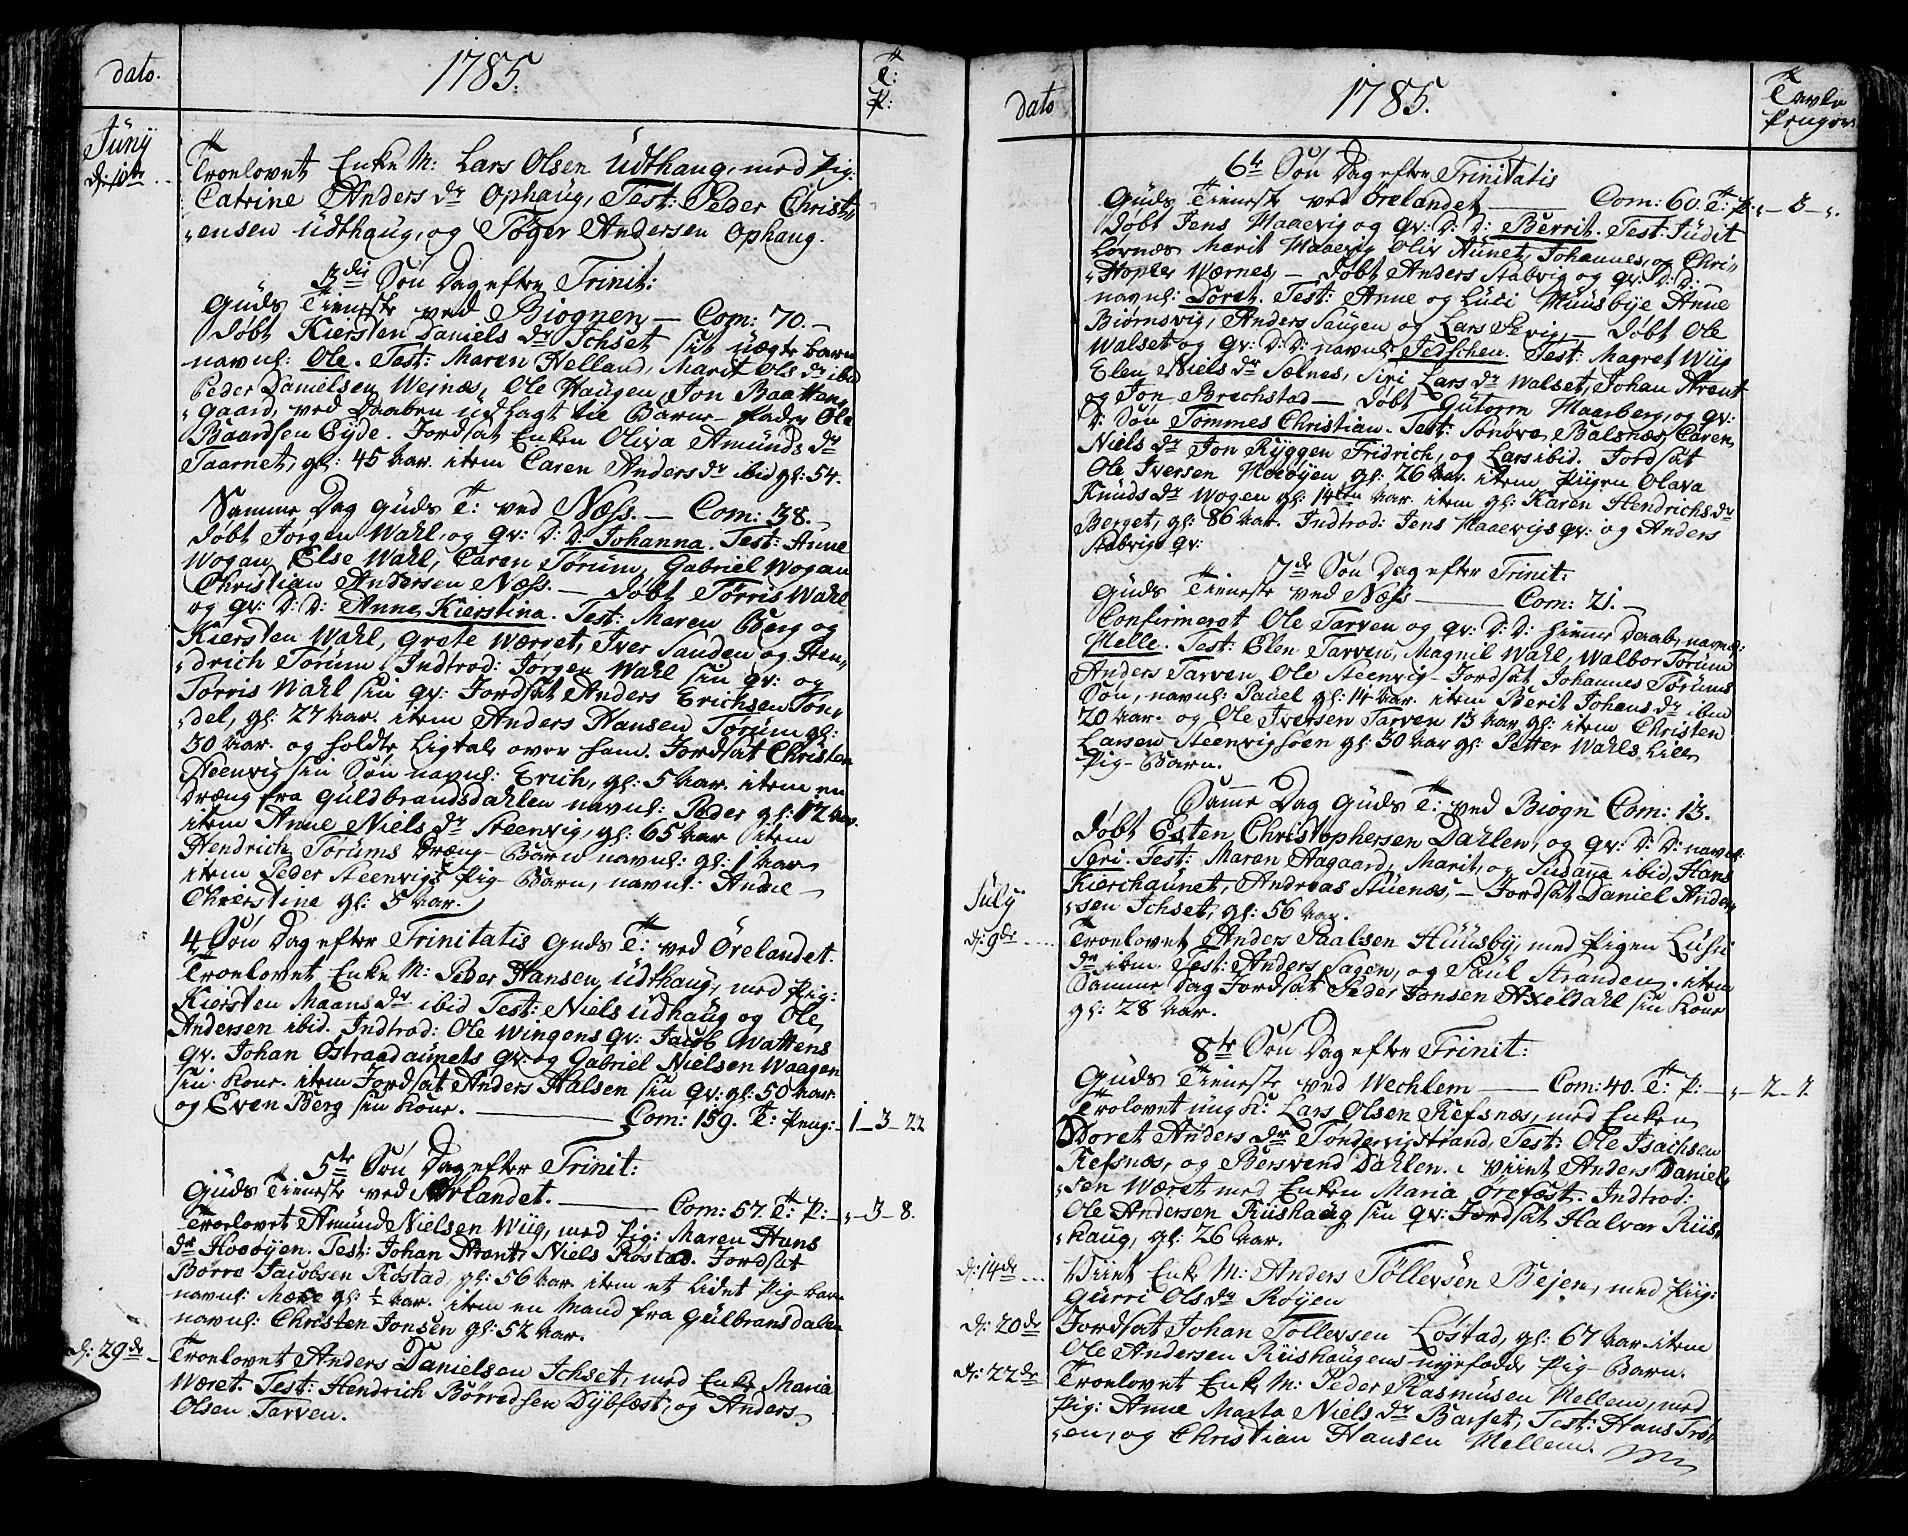 dato. 1785. T: P:
Juny
d: 10de Troelovet Enke M: Lars Olsen Udthaug, med Pig:
Catrine Anders dr Ophaug, Test: Peder Christ„
„ensen Udthaug, og Tøger Andersen Ophaug.
3die Søn Dag efter Trinit:
Guds Tieneste ved Biognen, — Com: 70. —
Døbt Kiersten Daniels dr Ichset sit uægte barn
navnl: Ole. Test: Maren Helland, Marit Ols dr ibid
Peder Danielsen Wejnæs, Ole Haugen, Jon Baathen„
„gaard, ved Daaben udlagt til Barne-fader Ole
Baardsen Eyde. Jordsat Enken Oliva Amunds dr
Taarnet, gl: 45 Aar. item Caren Anders dr ibid gl: 54.
Samme Dag Guds T: ved Næss. — Com: 38. —
Døbt Jørgen Wahl, og qv: D: D: Johanna. Test: Anne
Wogan, Else Wahl, Caren Tørum, Gabriel Wogan
Christian Andersen Næss. — Døbt Torris Wahl
og qv: D: D: Anne Kierstina. Test: Maren Berg og
Kiersten Wahl, Grete Wærget, Iver Sanden og Hen„
„drich Torum. Indtrod: Jørgen Wahl sin qv: og
Torris Wahl sin qv: Jordsat Anders Erichsen Tøn„
„del, gl: 27 Aar. item Anders Hansen Torum gl:
30 Aar. og holdte Ligtale over ham. Jordsat Christen
Steenvig sin Søn navnl: Erich, gl: 5 Aar. item en
Dræng fra Guldbrandsdahlen navnl: Peder gl: 12 Aar.
item Anne Niels dr Steenvig, gl: 65 Aar item
Hendrich Torums Dræng-Barn navnl: gl: 1 Aar
item Peder Steenvigs Pig-Barn, navnl: Anne —
Christine gl: 5 Aar.
4 Søn Dag efter Trinitatis Guds T: ved Ørelandet.
Troelovet Enke M: Peder Hansen Udthaug, med Pig:
Kiersten Maans dr ibid Test: Niels Udhaug og Ole
Andersen ibid. Indtrod: Ole Wingens qv: Jacob Wattens
qv. Johan Østraadaunets qv og Gabriel Nielsen Waagen
sin Kone. item Jordsat Anders Halsen sin qv: gl: 50 Aar
og Even Berg sin Kone. — Com: 159. T: Peng: 1 — 3 — 22
5te Søn Dag efter Trinit:
Guds Tieneste ved Ørlandet. — Com: 57. T: P: „ — 3 — 8.
Troelovet Amund Nielsen Wiig, med Pig: Maren Hans
dr Hooøyen. Test: Johan Arent, Niels Rostad. Jordsat
Børre Jacobsen Rostad, gl: 56 Aar item et lidet Pig barn
navnl: gl: ½ Aar. item en Mand fra Gulbransdalen
navnl: Christen Jonsen gl: 52 Aar.
d: 29de Troelovet Anders Danielsen Ichset, med Enke Maria
Wæret. Test: Hendrich Børredsen Dybfæst, og Anders
Olsen Tarven.
dato 1785. Tavle Penger
6te Søn Dag efter Trinitatis
Guds Tieneste ved Ørelandet — Com: 60. T: P: „ — 3 — „.
Døbt Jens Haaevig og qv: D: D: Berrit. Test: Judit
Lovnæs Marit Haaevig Oliv Aunet, Johannes, og Chri„
„stopher Wærnes, — Døbt Anders Stabvig og qv: D: D: —
navnl: Doret. Test: Anne og Luci Huusbye Anne
Biørnsvig, Anders Saugen og Lars Sevig, — Døbt Ole
Walset og qv: D: D: navnl: Jedschen. Test: Magret Wiig
Elen Niels dr Sælnes, Siri Lars dr Walset, Johan Arent
og Jon Brechstad — Døbt Gutorm Haarberg, og qv:
D: Søn Tommes Christian. Test: Synøve Balsnæs, Caren
Niels dr Jon Ryggen Fridrich, og Lars ibid. Jordsat
Ole Iversen Hooøyen gl: 26 Aar. item Pigen Olava
Knuds dr Wogen gl: 14ten Aar item gl: Karen Hendrichs dr
Berget, gl: 86 Aar. Indtrod: Jens Haaevigs qv: og Anders
Stabvigs qv:
7de Søn Dag efter Trinit:
Guds Tieneste ved Næss — Com: 21. —
Confirmeret Ole Tarven og qv: D: D: hieme Daab, navnl:
Melle. Test: Elen Tarven, Magnil Wahl, Walbor Torum
Anders Tarven, Ole Steenvig. Jordsat Johannes Torums
Søn, navnl: Pauel gl: 14 Aar. item Berit Johans dr ibm
20 Aar. og Ole Iversen Tarven 13 Aar gl: item Christen
Larsen Steenvigsøen gl: 30 Aar gl: Petter Wahls Lille
Pig-Barn.
Same Dag Guds T: ved Biogn Com: 13.
Døbt Esten Christophersen Dahlen, og qv: D: D: navnl:
Seri. Test: Maren Aagaard, Marit, og Susana ibid, Hans
Kierchaunet, Andreas Stuenæs, — Jordsat Daniel Ander„
„sen Ichset, gl: 56 Aar.
July
d: 9de Troelovet Anders Paalsen Huusby, med Pigen Lusi
dr ibm. Test: Anders Sagen, og Paul Stranden. item
Samme Dag Jordsat Peder Jonsen Axeldahl sin Kone
gl: 28 Aar.
8te Søn Dag efter Trinit:
Guds Tieneste ved Wechlem — Com: 40. T: P: — „ — 2 — 2.
Trolovet ung K: Lars Olsen Refsnæs, med Enken
Doret Anders dr Tøndervigstrand, Test: Ole Isachsen
Refsnæs, og Bersvend Dahlen. Viiet Anders Daniel„
„sen Wæret med Enken Maria Ørefæst. Indtrod:
Ole Andersen Riishaug sin qv: Jordsat Halvar Riis„
„haug, gl: 26 Aar.
d: 14de Viiet Enke M: Anders Tøllevsen Bejen, med Piig:
Gurri Ols dr Røyen
d: 20de Jordsat Johan Tøllevsen Løstad, gl: 67 Aar item
Ole Andersen Riishaugens nyefødde Pig-Barn.
d: 22de Troelovet Enke M: Peder Rasmusen Mellem, med
Pig: Anne Marta Niels dr Barset, Test: Hans Trø„
„en, og Christian Hansen Mellem.